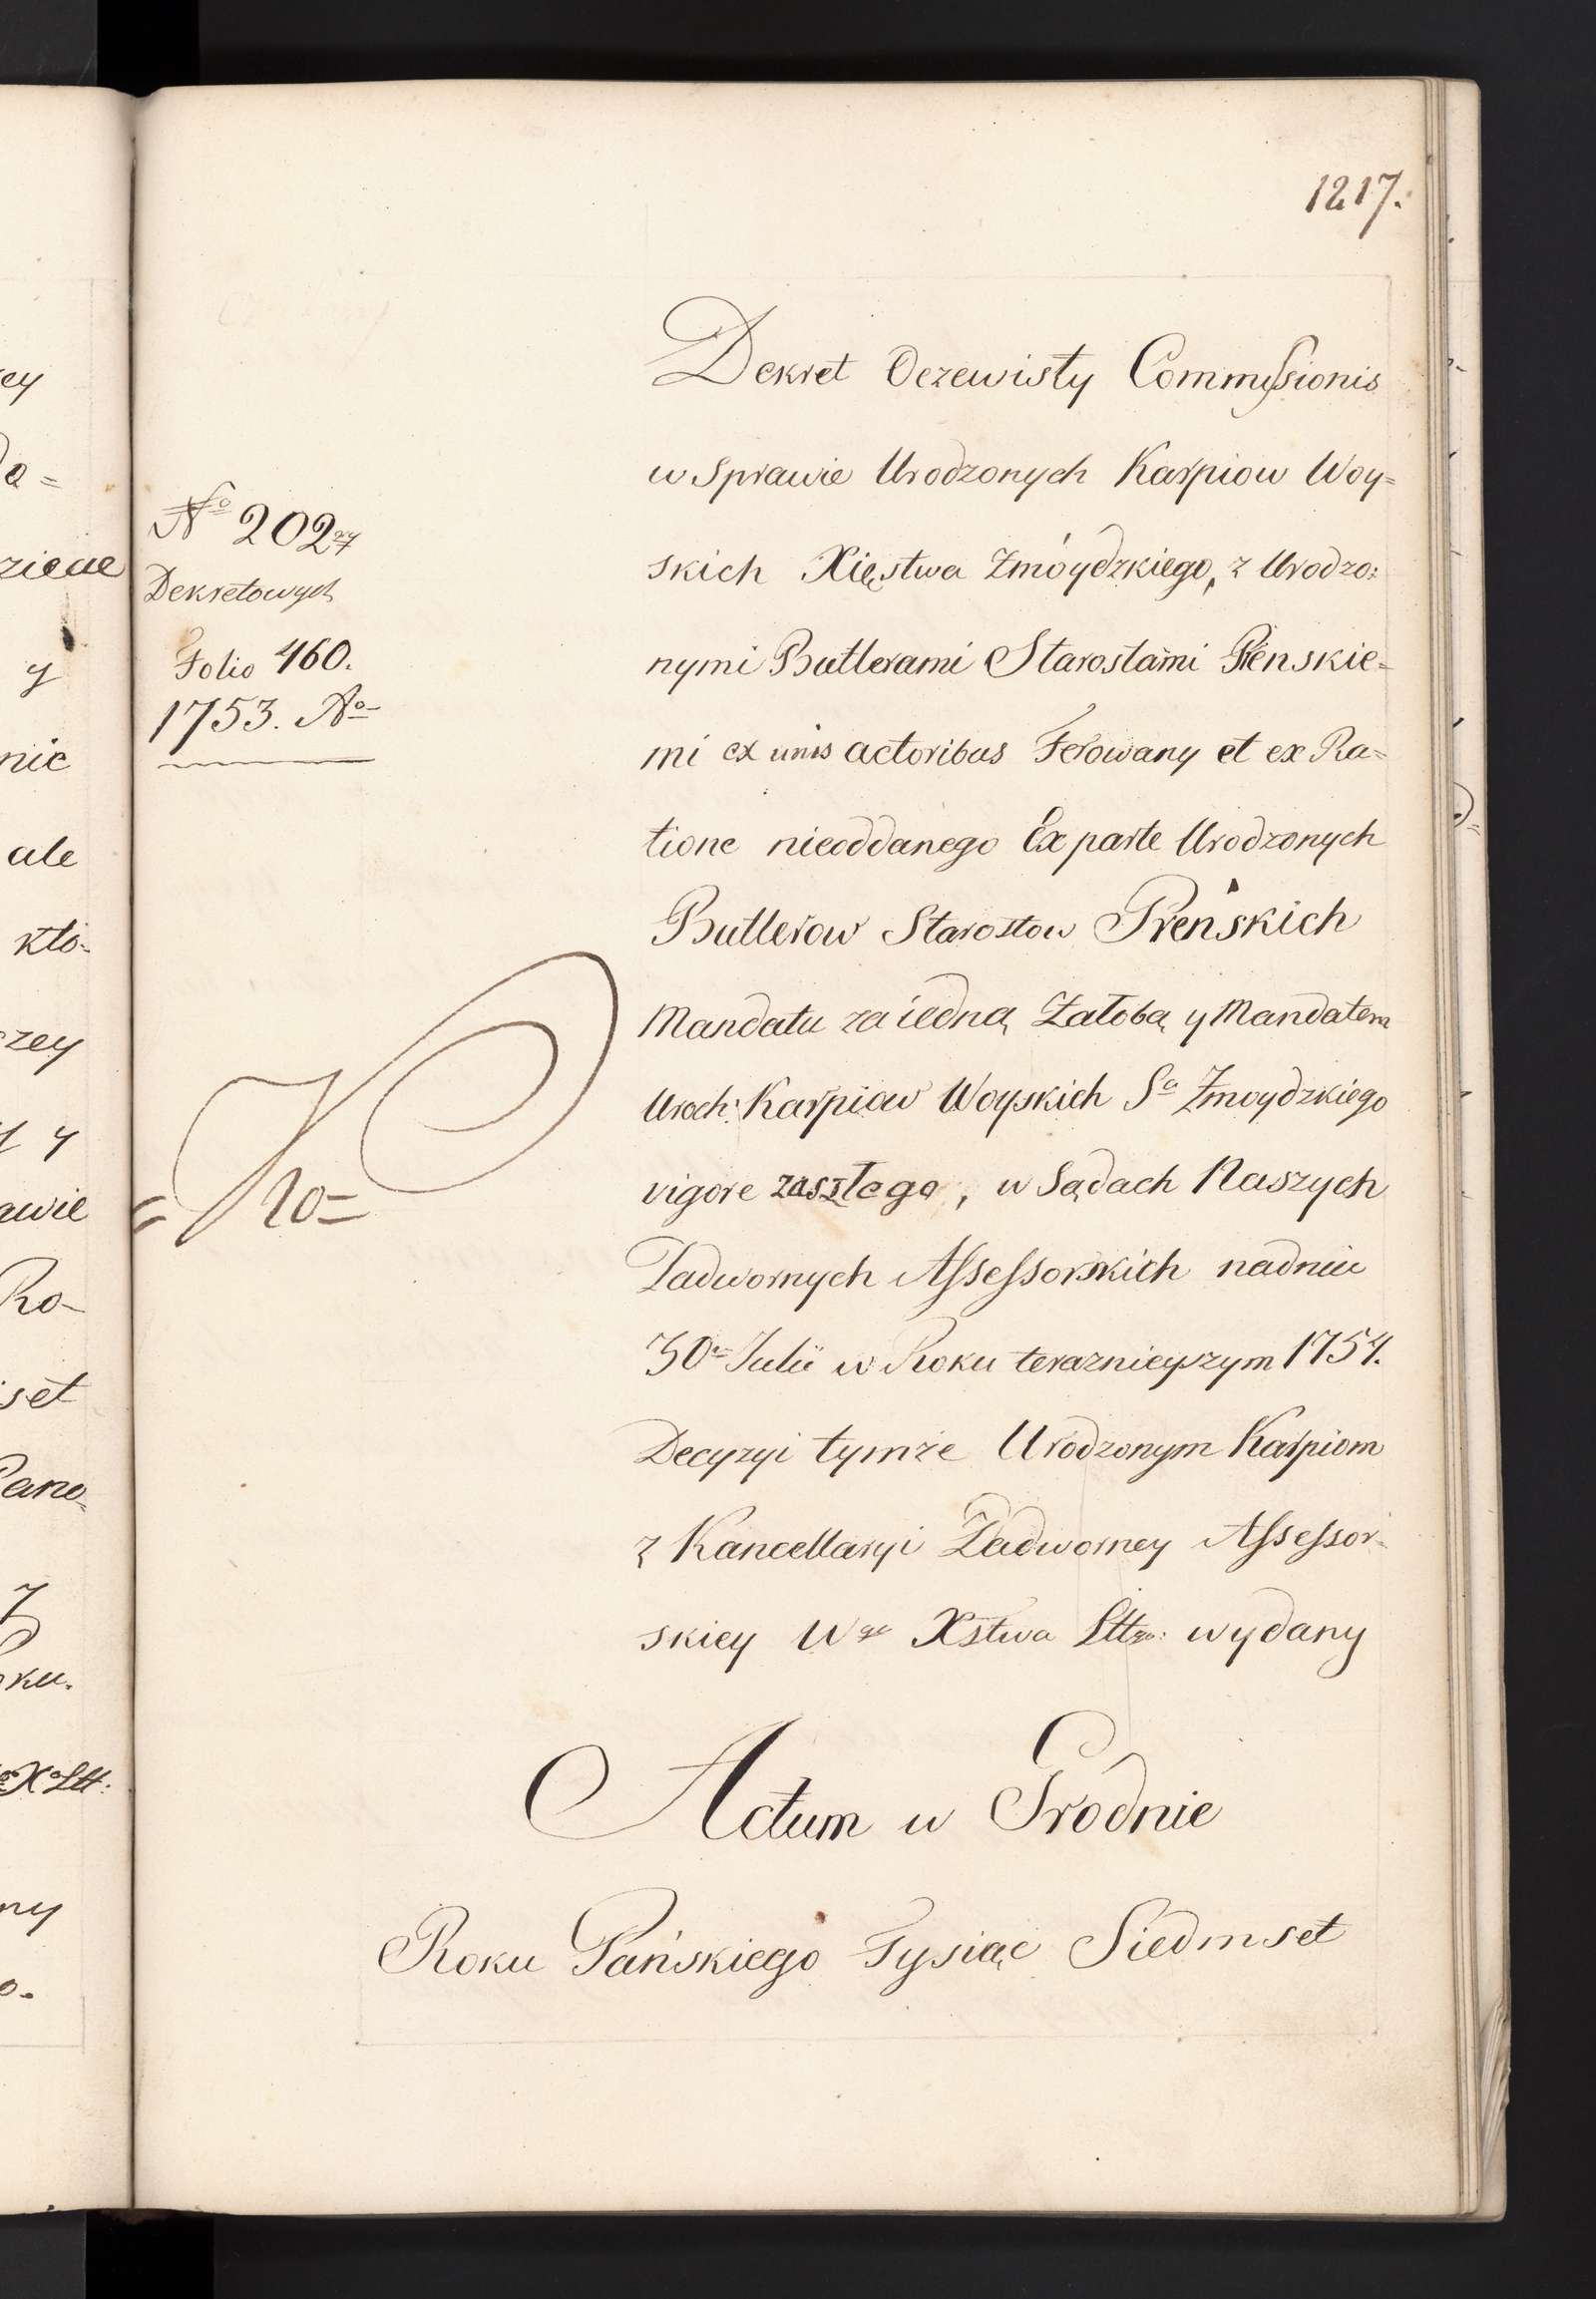 1217.
Dekret Oczewisty Commissionis
w Sprawie Urodzonych Karpiow Woy=
skich Xięstwa Zmóydzkiego, z Urodzo:
nymi Butlerami Starostami Pienskie=
mi ex unis actoribus Ferowany et ex Ra=
tione nieoddanego Ex parte Urodzonych
Butlerow Starostow Preńskich
Mandatu za iedną Załobą y Mandatem
Urodz: Karpiow Woyskich Sa Zmoydzkiego
vigore zaszłego, w Sądach Naszych
Zadwornych Assessorskich na dniu
30 Julii w Roku teraznieyszym 1754.
Decyzyi tymże Urodzonym Karpiom
z Kancellaryi Zadworney Assessor=
skiey Wgo Xstwa Littgo: wydany
Actum w Grodnie
Roku Pańskiego Tysiąc Siedmset
No 202
Dekretowych
Folio 460.
1753. Ao
ey
y
nic
ale
kto=
zey
y
awie
Ro-
set
ku.
ny